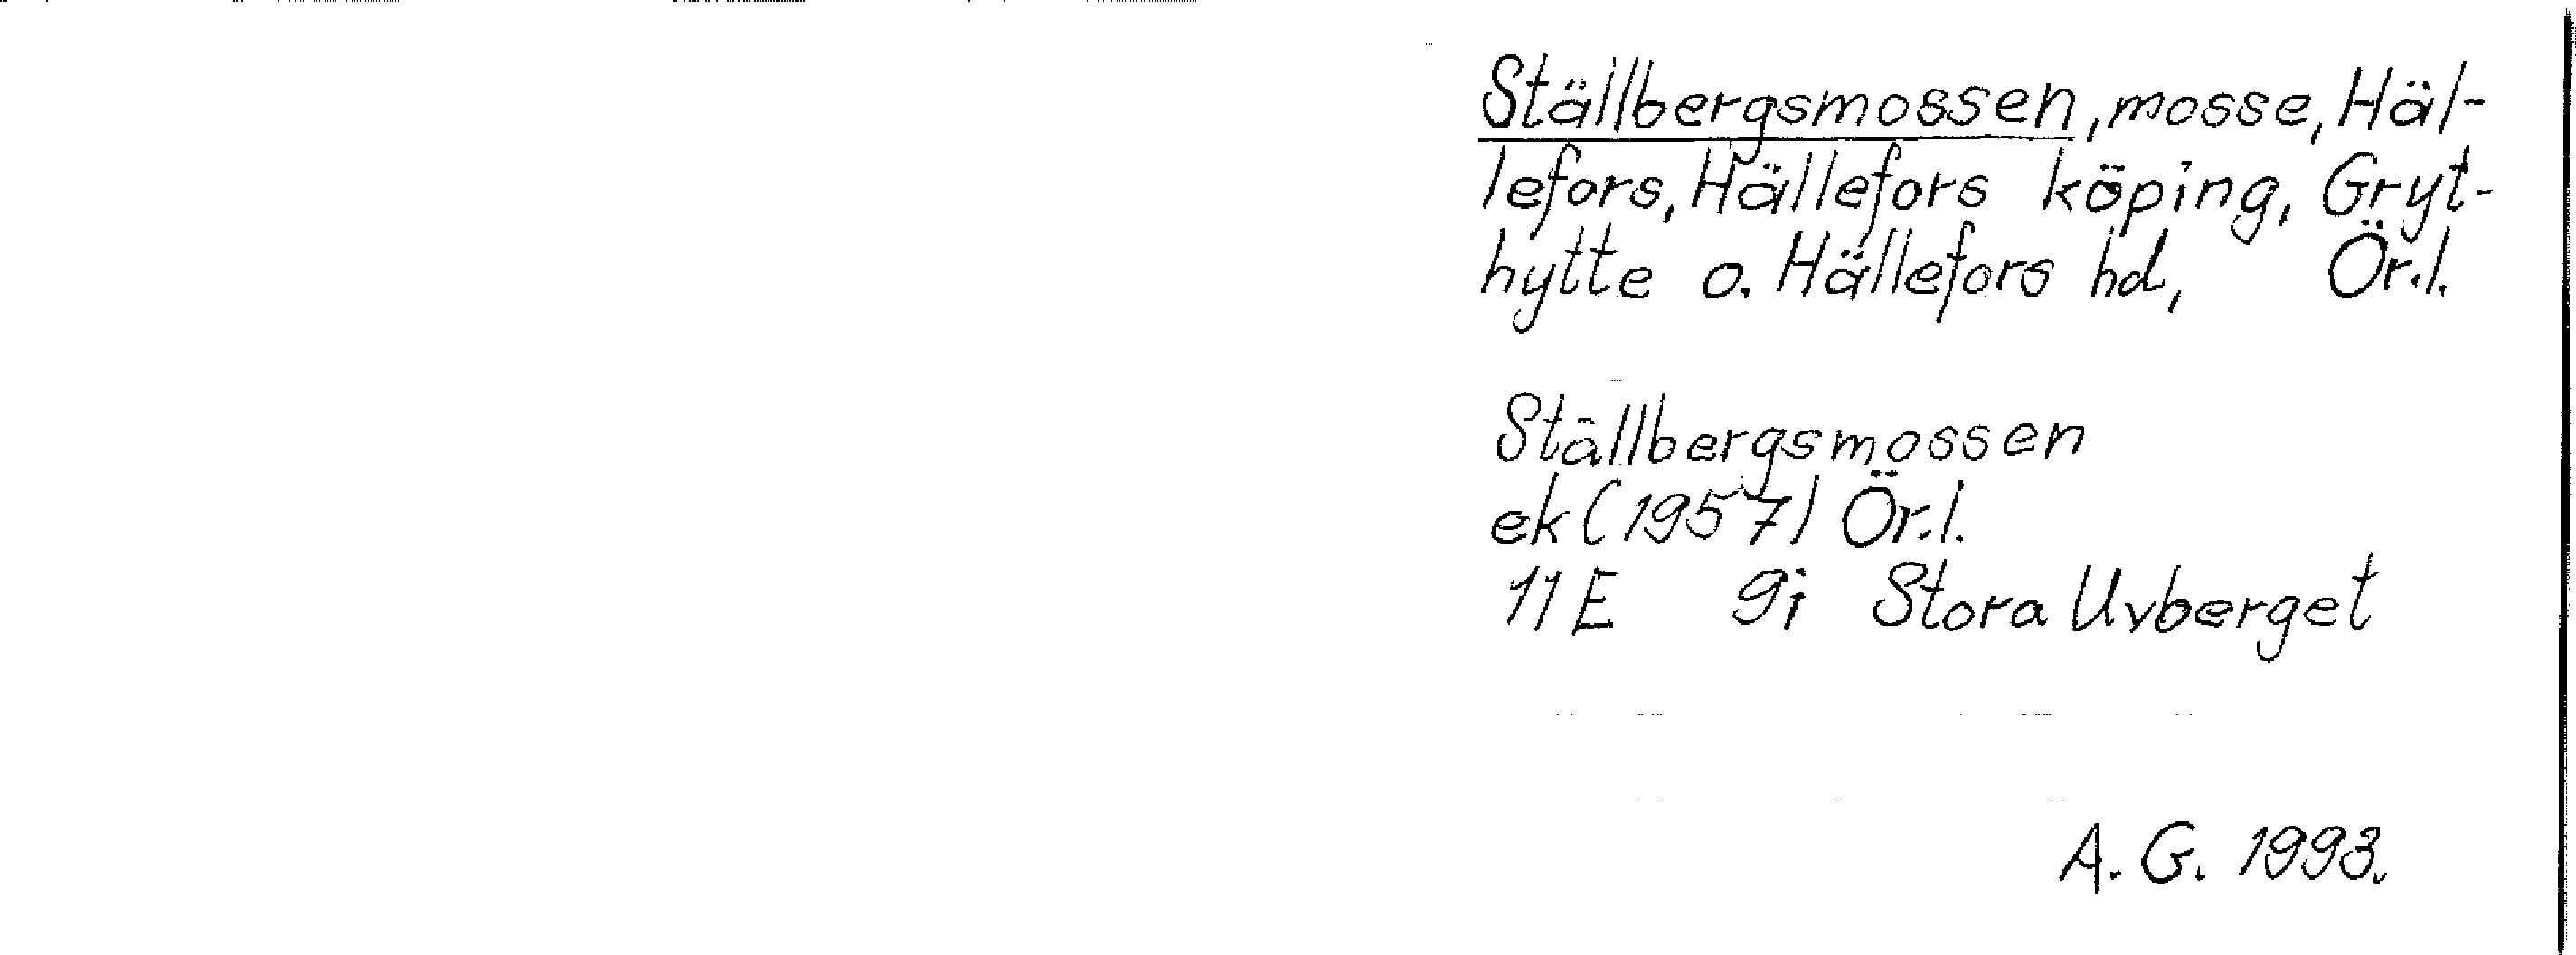 Ställbergsmossen, mosse, Häl-
lefors, Hällefors köping, Gryt-
hytte o. Hällefors hd, Ör.l.
Ställbergsmossen
ek (1957) Ör.l.
11E 9i Stora Uvberget
A. G. 1993.